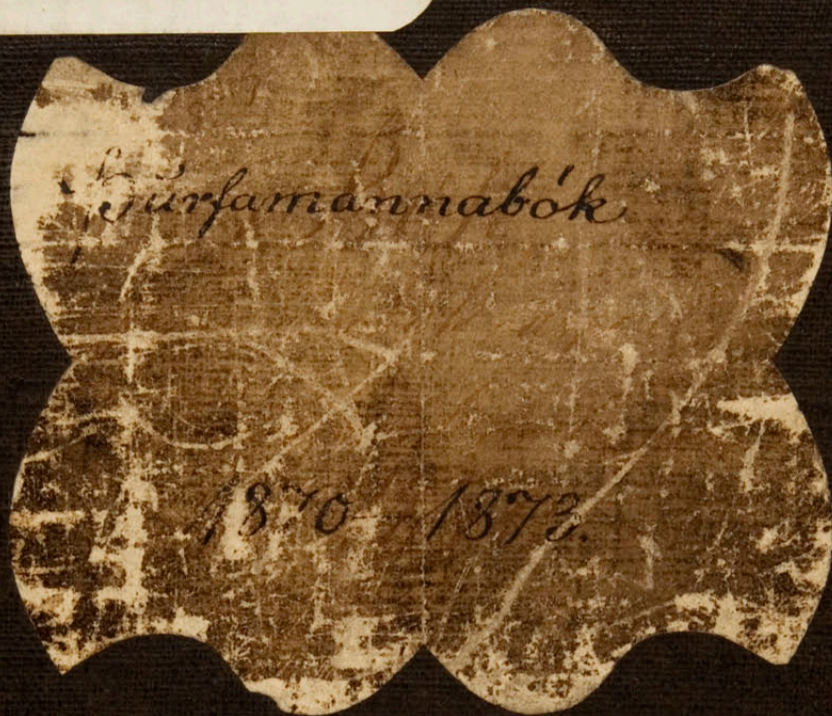 Þurfamannabók
1870 - 1873.